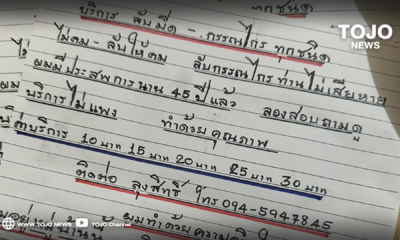 บริการ ลับมีด - กรรณไกร ทุกชนิด
ไม่คม - ลับให้คม ลับกรรณไกร ท่านไม่เสียหาย
ผมมีประสพการนาน 45 ปี แล้ว ลองสอบถามดู
บริการไม่แพง ทำด้วยคุณภาพ
ค่าบริการ 10 บาท 15 บาท 20 บาท 25 บาท 30 บาท
ติดต่อ ลุงสิทธิ์ โทร 094-5947845
ผมทำด้วยความ
TOJO
NEWS
TOJO NEWS TOJO Channel